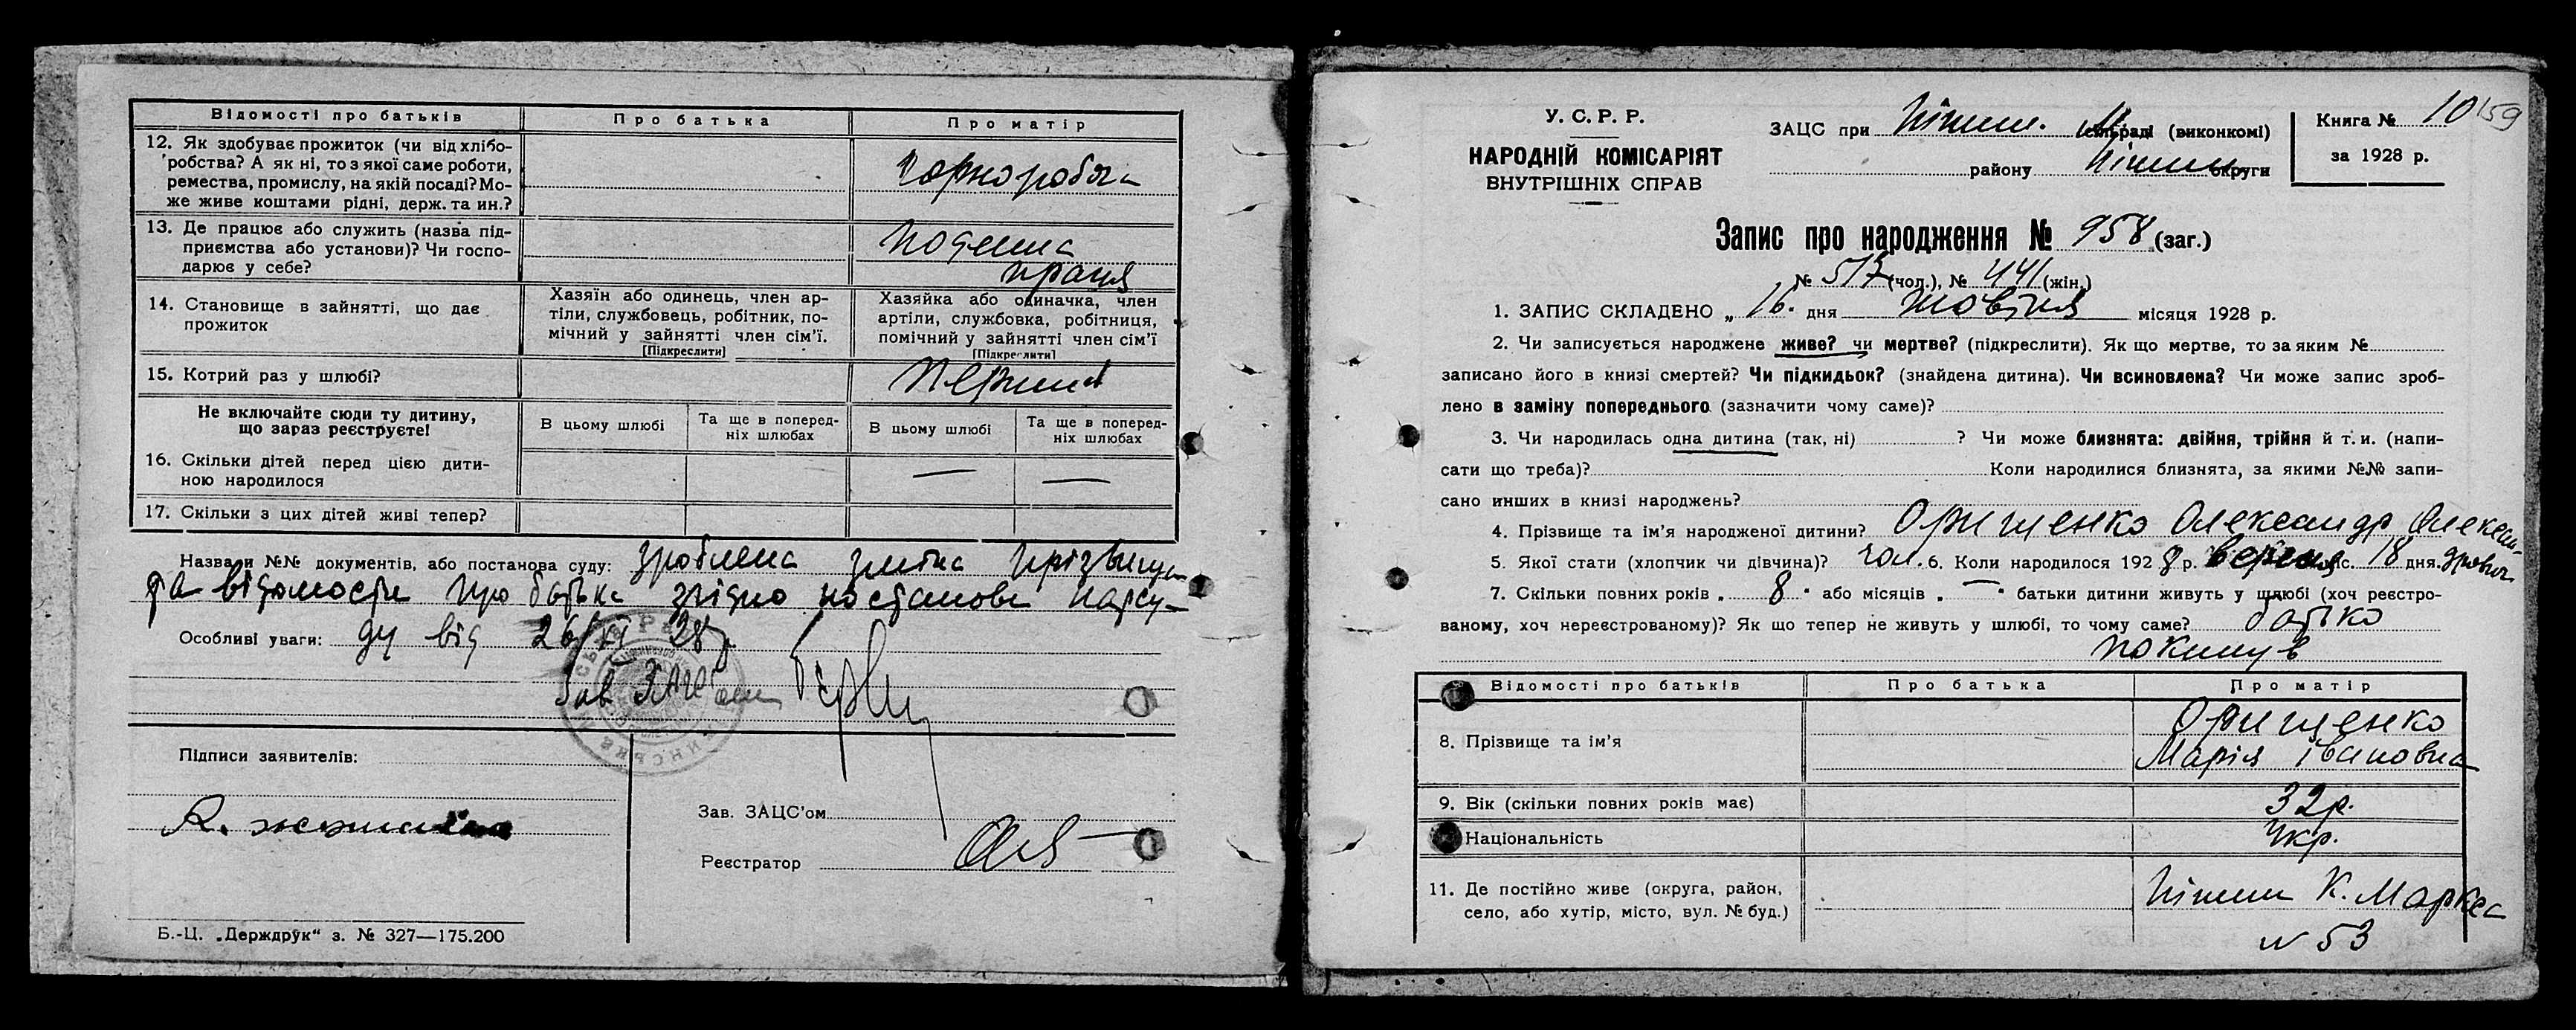 Відомості про батьків
Про батька
Про матір
12. Як здобуває прожиток (чи від хлібо-
робства? А як ні, то з якої саме роботи,
ремества, промислу, на якій посаді? Мо-
же живе коштами рідні, держ. та ин.?
Чорноробоча
13. Де працює або служить (назва під-
приємства або установи)? Чи госпо-
дарює у себе?
Поденна
праця
14. Становище в зайнятті, що дає
прожиток
Хазяїн або одинець, член ар-
тіли, службовець, робітник, по-
мічний у зайнятті член сім’ї.
[Підкреслити]
Хазяйка або одиначка, член
артіли, службовка, робітниця,
помічний у зайнятті член сім’ї
[Підкреслити]
15. Котрий раз у шлюбі?
Перший
Не включайте сюди ту дитину,
що зараз реєструєте!
В цьому шлюбі
Та ще в поперед-
ніх шлюбах
В цьому шлюбі
Та ще в поперед-
ніх шлюбах
16. Скільки дітей перед цією дити-
ною народилося
— —
17. Скільки з цих дітей живі тепер?
Назва й №№ документів, або постанова суду: зроблена зміна прізвища
та відомости про батька згідно постанови нарсу-
Особливі уваги: ду від 26/XI 28р
Зав ЗАГС
Підписи заявителів:
Зав. ЗАЦС’ом
Реєстратор
Б.-Ц. „Держдрук“ з. № 327—175.200
У. С. Р. Р.
НАРОДНІЙ КОМІСАРІЯТ
ВНУТРІШНІХ СПРАВ
ЗАЦС при Ніжин. М. сільраді (виконкомі)
району Ніжин округи
Книга № 10 159
за 1928 р.
Запис про народження № 958 (заг.)
№ 517 (чол.), № 441 (жін.)
1. ЗАПИС СКЛАДЕНО „ 16. дня жовтня місяця 1928 р.
2. Чи записується народжене живе? чи мертве? (підкреслити). Як що мертве, то за яким №
записано його в книзі смертей? Чи підкидьок? (знайдена дитина). Чи всиновлена? Чи може запис зроб-
лено в заміну попереднього (зазначити чому саме)?
3. Чи народилась одна дитина (так, ні) ? Чи може близнята: двійня, трійня й т. и. (напи-
сати що треба)? Коли народилися близнята, за якими №№ запи-
сано инших в книзі народжень?
4. Прізвище та ім’я народженої дитини? Орищенко Олександр Олексан-
5. Якої стати (хлопчик чи дівчина)? чол. 6. Коли народилося 1928 р. вересня міс. 18 дня. дрович
7. Скільки повних років „ 8 “ або місяців „ — “ батьки дитини живуть у шлюбі (хоч реєстро-
ваному, хоч нереєстрованому)? Як що тепер не живуть у шлюбі, то чому саме? батько
покинув
Відомості про батьків
Про батька
Про матір
8. Прізвище та ім’я
Орищенко
Марія Івановна
9. Вік (скільки повних років має)
32р.
Національність
Укр.
11. Де постійно живе (округа, район,
село, або хутір, місто, вул. № буд.)
Ніжин К. Маркса
№ 53